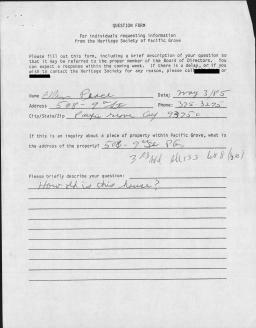 QUESTION FORM
For individuals requesting information
from the Heritage Society of Pacific Grove
Please fill out this form, including a brief description of your question so
that it may be referred to the proper member of the Board of Directors. You
can expect a response within the coming week. If there is a delay, or if you
wish to contact the Heritage Society for any reason, please call or
Name Peace Date: May 3/85
Address 508-9th St Phone: 375 3275
City/State/Zip Pacific Grove Cal 93950
If this is an inquiry about a piece of property within Pacific Grove, what is
the address of the property? 508-9th St PG
3rd Add
Please briefly describe your question:
How old is this house?